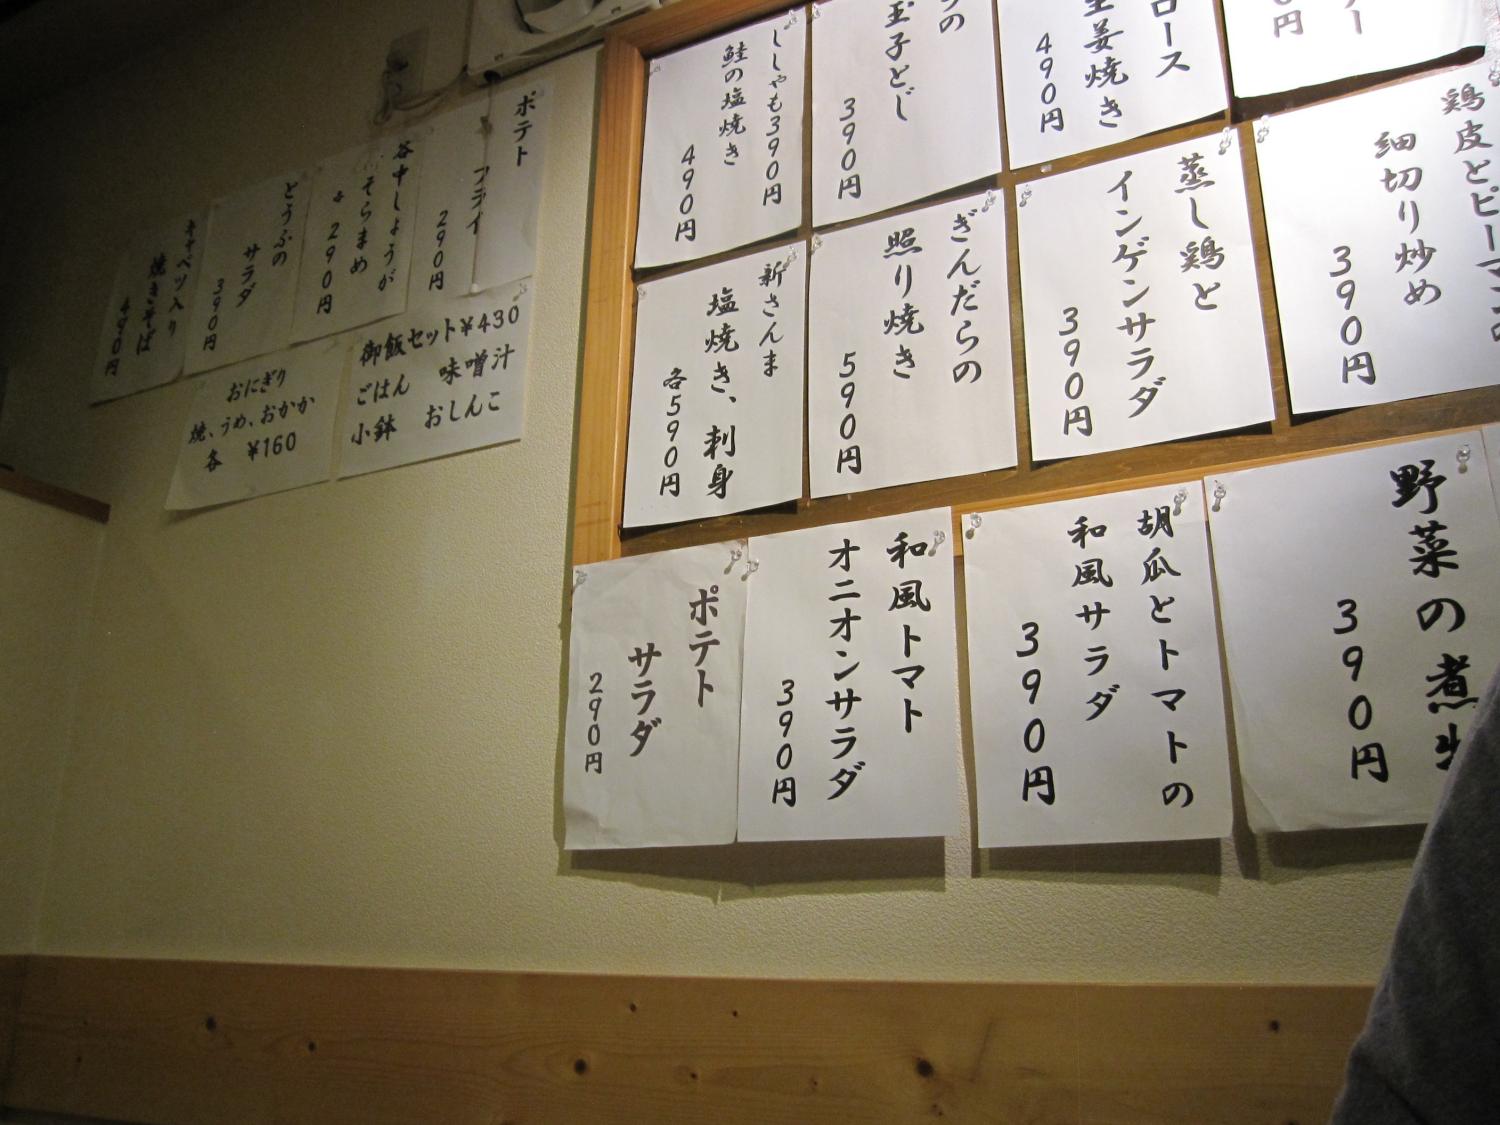 ポテト
フライ
290円
谷中しょうが
そらまめ
290円
とうふの
サラダ
390円
キャベツ入り
焼きそば
490円
御飯セット¥430
ごはん 味噌汁
小鉢 おしんこ
おにぎり
焼、うめ、おかか
各 ¥160
ロース
生姜焼き
490円
の
玉子とじ
390円
ししゃも390円
鮭の塩焼き
490円
鶏皮とピーマンの
細切り炒め
390円
蒸し鶏と
インゲンサラダ
390円
ぎんだらの
照り焼き
590円
新さんま
塩焼き、刺身
各590円
野菜の煮
390円
胡瓜とトマトの
和風サラダ
390円
和風トマト
オニオンサラダ
390円
ポテト
サラダ
290円